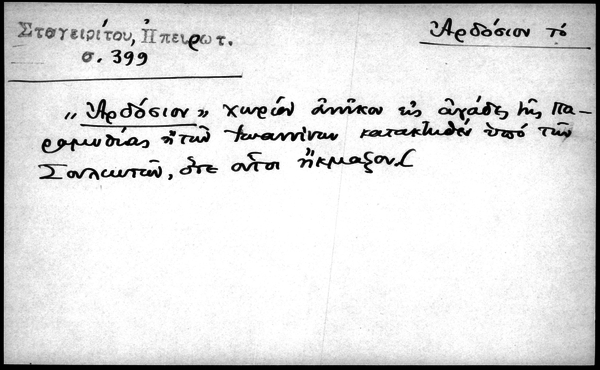 Σταγειρίτου, Ηπειρωτ.
σ. 399
Ἀρδόσιον τό
„Ἀρδόσιον„ χωρίον ἀνῆκον εἰς ἀγάδες τῆς Πα-
ραμυθίας ἢ τῶν Ἰωαννίνων κατακτηθέν ὑπό τῶν
Σουλιωτῶν, ὅτε οὗτοι ἤκμαζον.